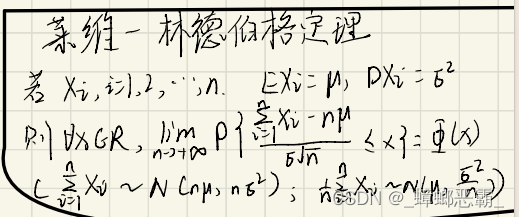 莱维-林德伯格定理
若 Xi, i=1,2,…,n. EXi=μ, DXi=σ²
则 ∀x∈R, lim n→+∞ P{ (∑_{i=1}^{n} Xi - nμ) / (σ√n) ≤ x } = Φ(x)
( ∑_{i=1}^{n} Xi ~ N(nμ, nσ²); 1/n ∑_{i=1}^{n} Xi ~ N(μ, σ²/n) )
CSDN @_蟑螂恶霸_